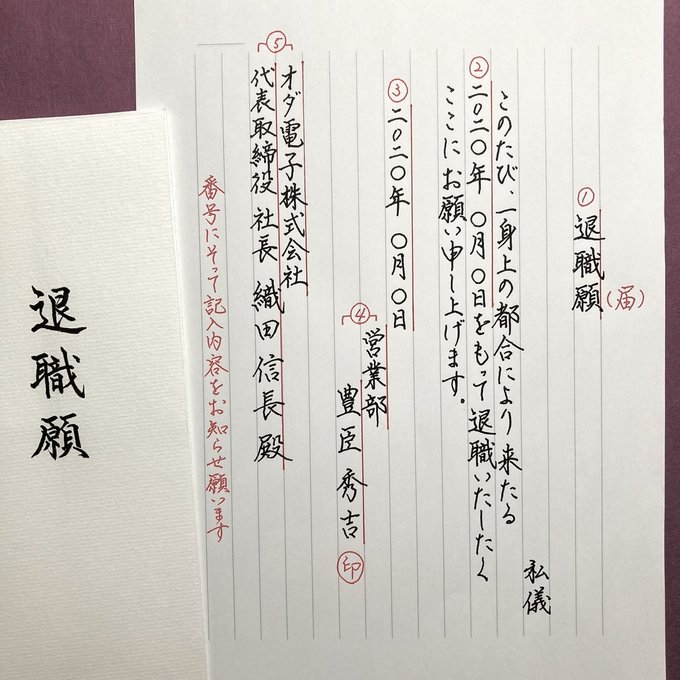 ①退職願(届)
私儀
このたび、一身上の都合により来たる
②二〇二〇年 〇月〇日をもって退職いたしたく
ここにお願い申し上げます。
③二〇二〇年 〇月〇日
④営業部
豊臣秀吉 印
⑤オダ電子株式会社
代表取締役社長 織田信長殿
番号にそって記入内容をお知らせ願います
退職願